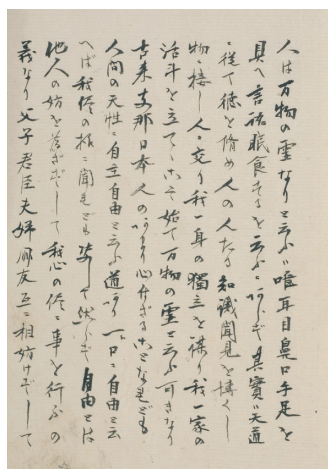 人は万物の霊なりと云ふハ唯耳目鼻口手足を
具へ言語眠食するを云ふニあらず其實ハ天道
ニ從て徳を脩め人の人たる知識聞見を博くし
物ニ接し人ニ交り我一身の獨立を謀り我一家の
活計を立てゝこそ始て万物の霊と云ふ可きなり
古来支那日本人のあまり心付かざることなれども
人間の天性ニ自主自由と云ふ道あり一ト口ニ自由と云
へば我侭の様ニ聞ゆれども决して然らず自由とは
他人の妨を為さずして我心の侭ニ事を行ふの
義なり父子君臣夫婦朋友互ニ相妨げずして